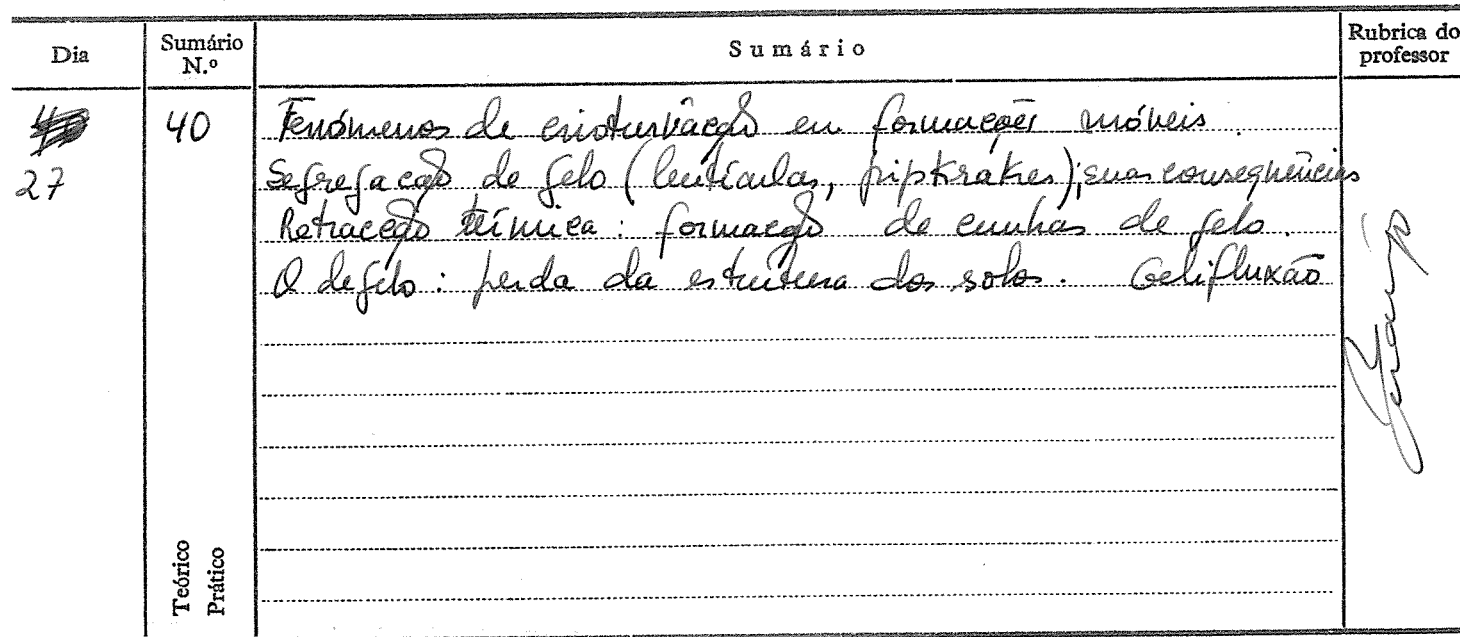 Dia
Sumário N.º
Sumário
Rubrica do professor
27
40
Fenómenos de crioturbação em formações móveis.
Segregação de gelo (lentículas, pipkrakes); suas consequências
Retracção térmica: formação de cunhas de gelo.
O degelo: perda da estrutura dos solos. Gelifluxão
Teórico
Prático